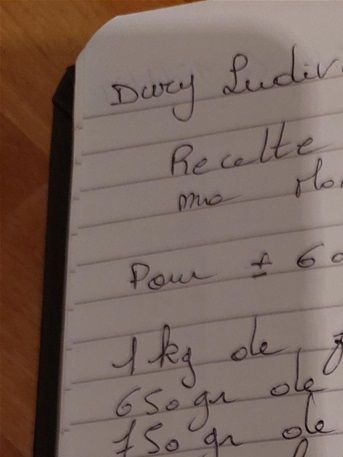 Dury Ludiv
Recette
ma
Pour ± 6
1 kg de
650 gr de
750 gr de